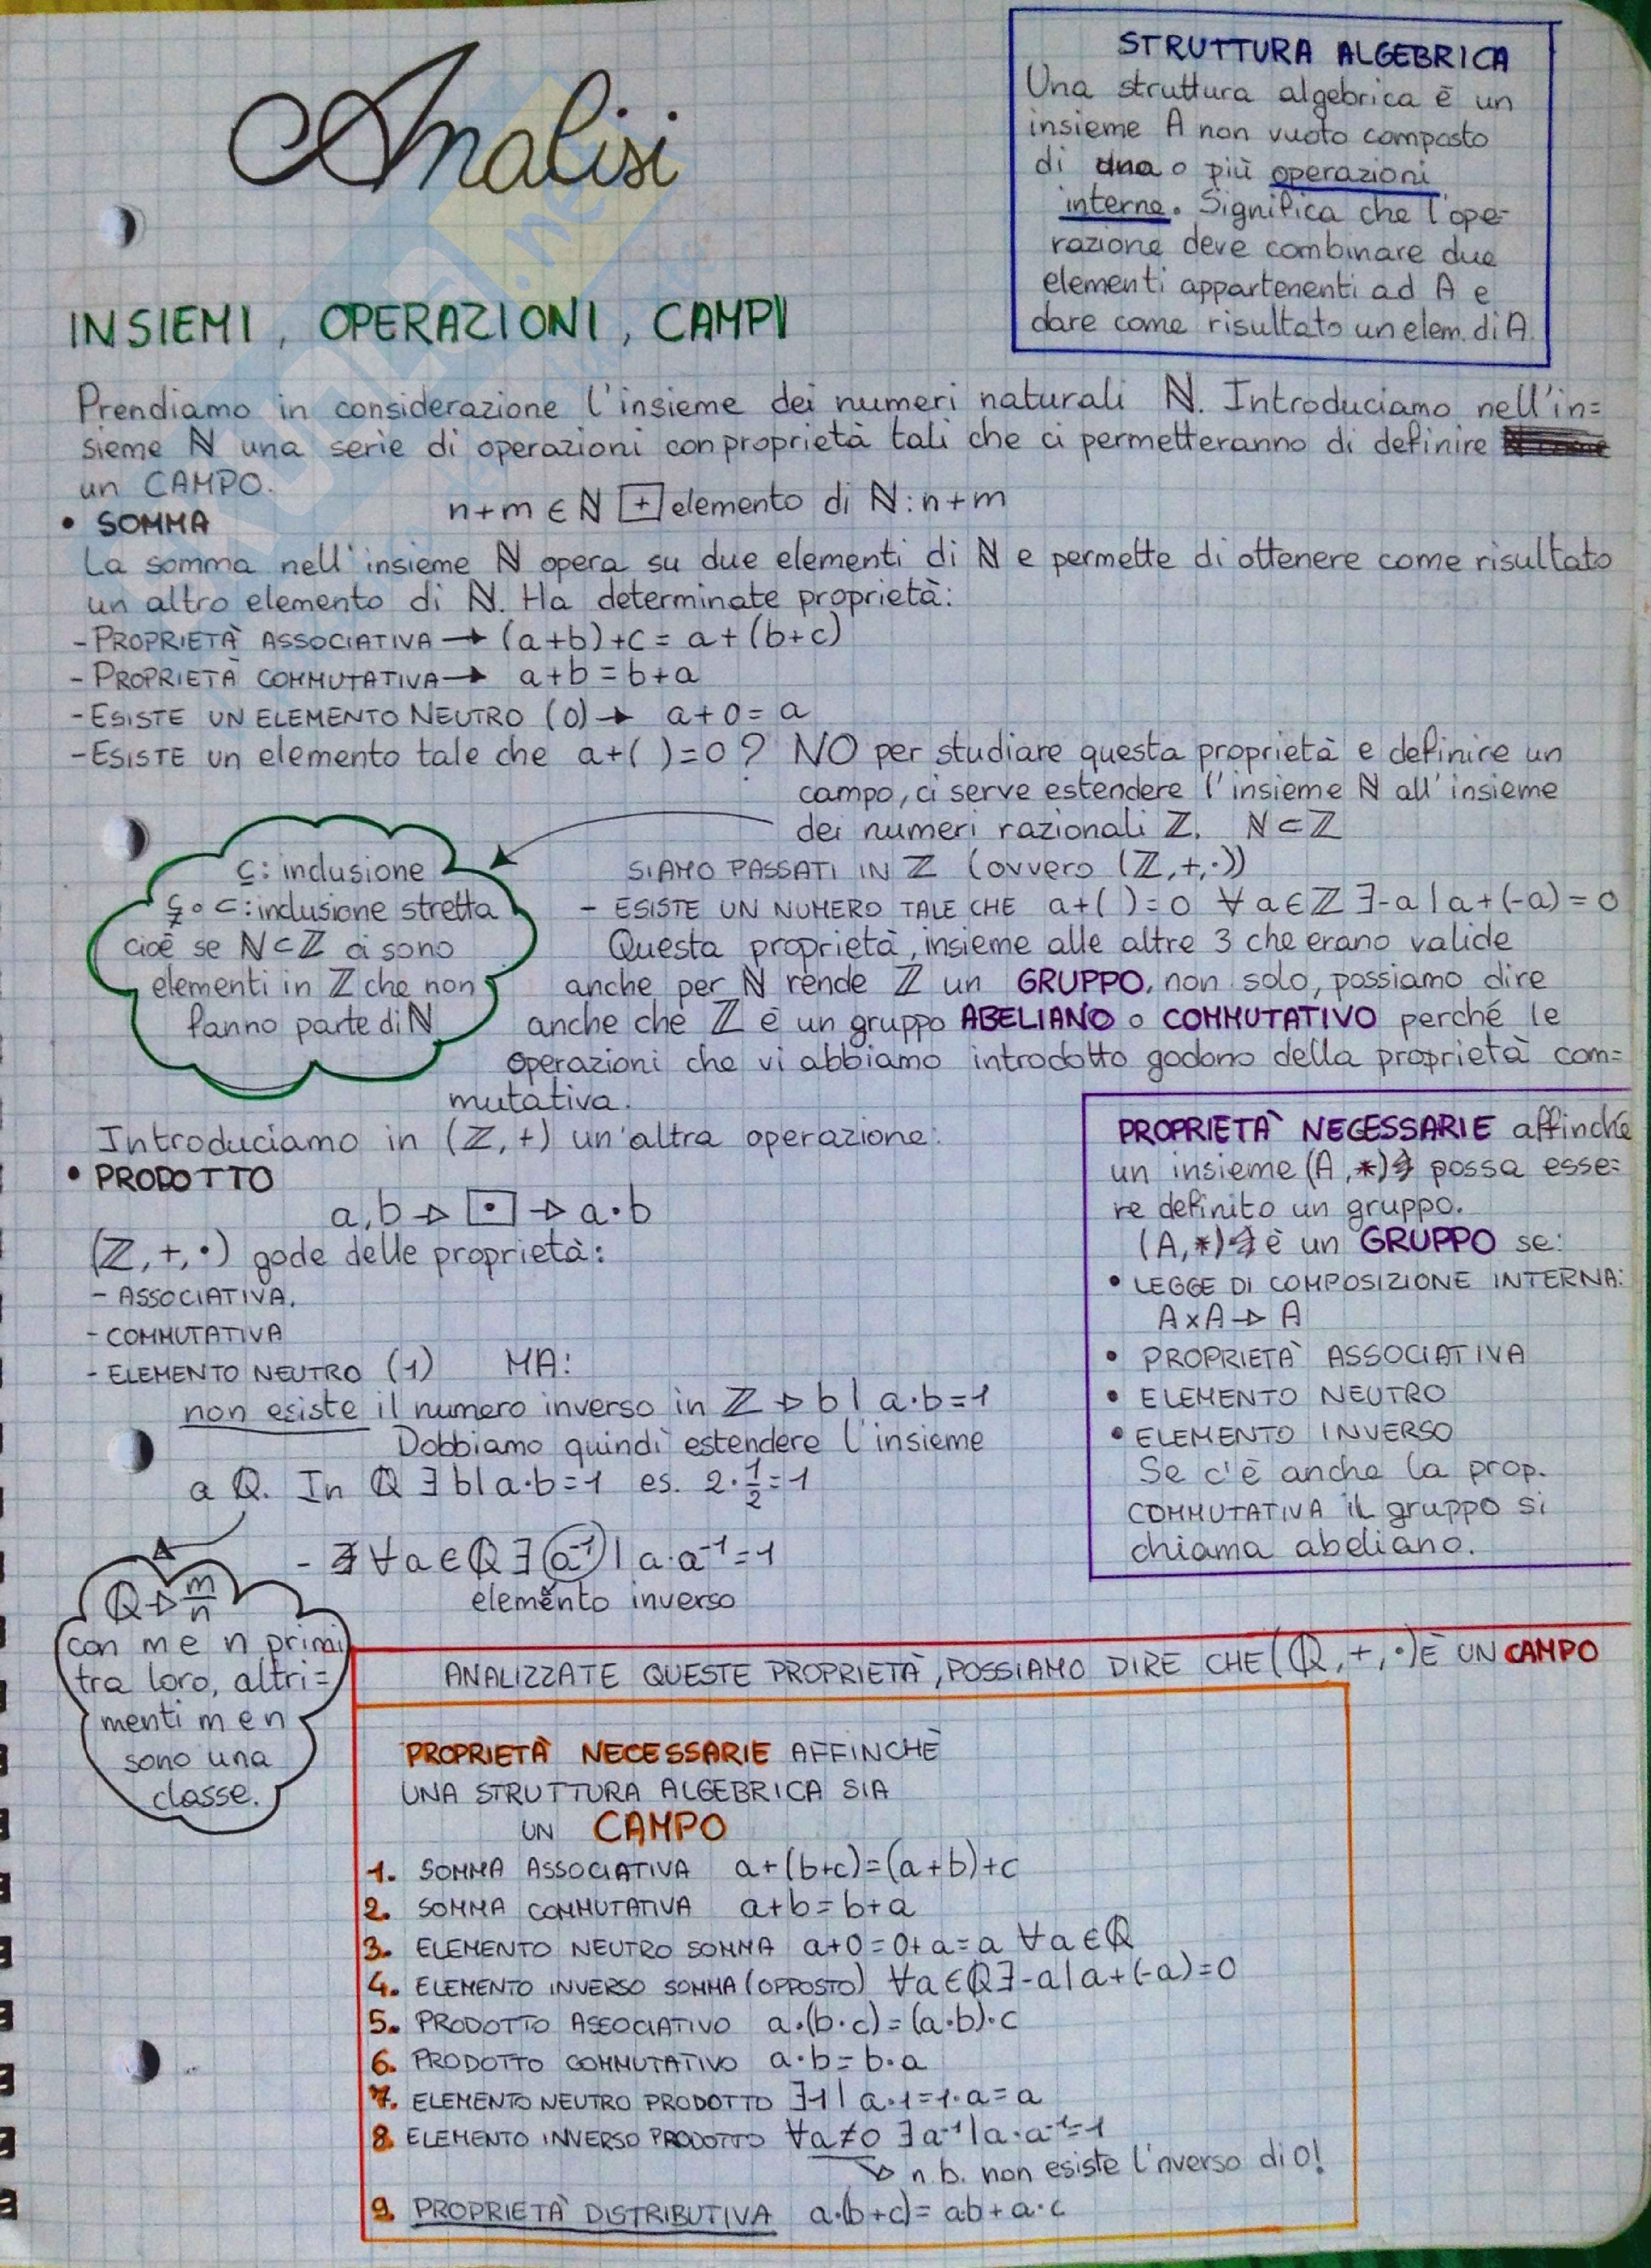 Analisi
STRUTTURA ALGEBRICA
Una struttura algebrica è un
insieme A non vuoto composto
di una o più operazioni
interne. Significa che l'ope-
razione deve combinare due
elementi appartenenti ad A e
dare come risultato un elem. di A.
INSIEMI, OPERAZIONI, CAMPI
Prendiamo in considerazione l'insieme dei numeri naturali ℕ. Introduciamo nell'in=
sieme ℕ una serie di operazioni con proprietà tali che ci permetteranno di definire
un CAMPO.
• SOMMA
n+m ∈ ℕ [+] elemento di ℕ: n+m
La somma nell'insieme ℕ opera su due elementi di ℕ e permette di ottenere come risultato
un altro elemento di ℕ. Ha determinate proprietà:
- PROPRIETÀ ASSOCIATIVA → (a+b)+c = a+(b+c)
- PROPRIETÀ COMMUTATIVA → a+b = b+a
- ESISTE UN ELEMENTO NEUTRO (0) → a+0 = a
- ESISTE un elemento tale che a+( )=0? NO per studiare questa proprietà e definire un
campo, ci serve estendere l'insieme ℕ all'insieme
dei numeri razionali ℤ. ℕ⊂ℤ
⊆: inclusione
⊊ o ⊂: inclusione stretta
cioè se ℕ⊂ℤ ci sono
elementi in ℤ che non
fanno parte di ℕ
SIAMO PASSATI IN ℤ (ovvero (ℤ,+,·))
- ESISTE UN NUMERO TALE CHE a+( )=0 ∀a∈ℤ ∃-a | a+(-a)=0
Questa proprietà, insieme alle altre 3 che erano valide
anche per ℕ rende ℤ un GRUPPO, non solo, possiamo dire
anche che ℤ è un gruppo ABELIANO o COMMUTATIVO perché le
operazioni che vi abbiamo introdotto godono della proprietà com=
mutativa.
Introduciamo in (ℤ,+) un'altra operazione:
• PRODOTTO
a,b → [·] → a·b
(ℤ,+,·) gode delle proprietà:
- ASSOCIATIVA,
- COMMUTATIVA
- ELEMENTO NEUTRO (1) MA:
non esiste il numero inverso in ℤ → b | a·b=1
Dobbiamo quindi estendere l'insieme
a ℚ. In ℚ ∃ b | a·b=1 es. 2·1/2=1
- ∀a∈ℚ ∃ a⁻¹ | a·a⁻¹=1
elemento inverso
PROPRIETÀ NECESSARIE affinché
un insieme (A,*) possa esse=
re definito un gruppo.
(A,*) è un GRUPPO se:
• LEGGE DI COMPOSIZIONE INTERNA:
A×A → A
• PROPRIETÀ ASSOCIATIVA
• ELEMENTO NEUTRO
• ELEMENTO INVERSO
Se c'è anche la prop.
COMMUTATIVA il gruppo si
chiama abeliano.
ℚ → m/n
con m e n primi
tra loro, altri=
menti m e n
sono una
classe.
ANALIZZATE QUESTE PROPRIETÀ, POSSIAMO DIRE CHE (ℚ,+,·) È UN CAMPO
PROPRIETÀ NECESSARIE AFFINCHÈ
UNA STRUTTURA ALGEBRICA SIA
UN CAMPO
1. SOMMA ASSOCIATIVA a+(b+c)=(a+b)+c
2. SOMMA COMMUTATIVA a+b=b+a
3. ELEMENTO NEUTRO SOMMA a+0=0+a=a ∀a∈ℚ
4. ELEMENTO INVERSO SOMMA (OPPOSTO) ∀a∈ℚ ∃-a | a+(-a)=0
5. PRODOTTO ASSOCIATIVO a·(b·c)=(a·b)·c
6. PRODOTTO COMMUTATIVO a·b=b·a
7. ELEMENTO NEUTRO PRODOTTO ∃1 | a·1=1·a=a
8. ELEMENTO INVERSO PRODOTTO ∀a≠0 ∃a⁻¹ | a·a⁻¹=1
→ n.b. non esiste l'inverso di 0!
9. PROPRIETÀ DISTRIBUTIVA a·(b+c)=ab+a·c